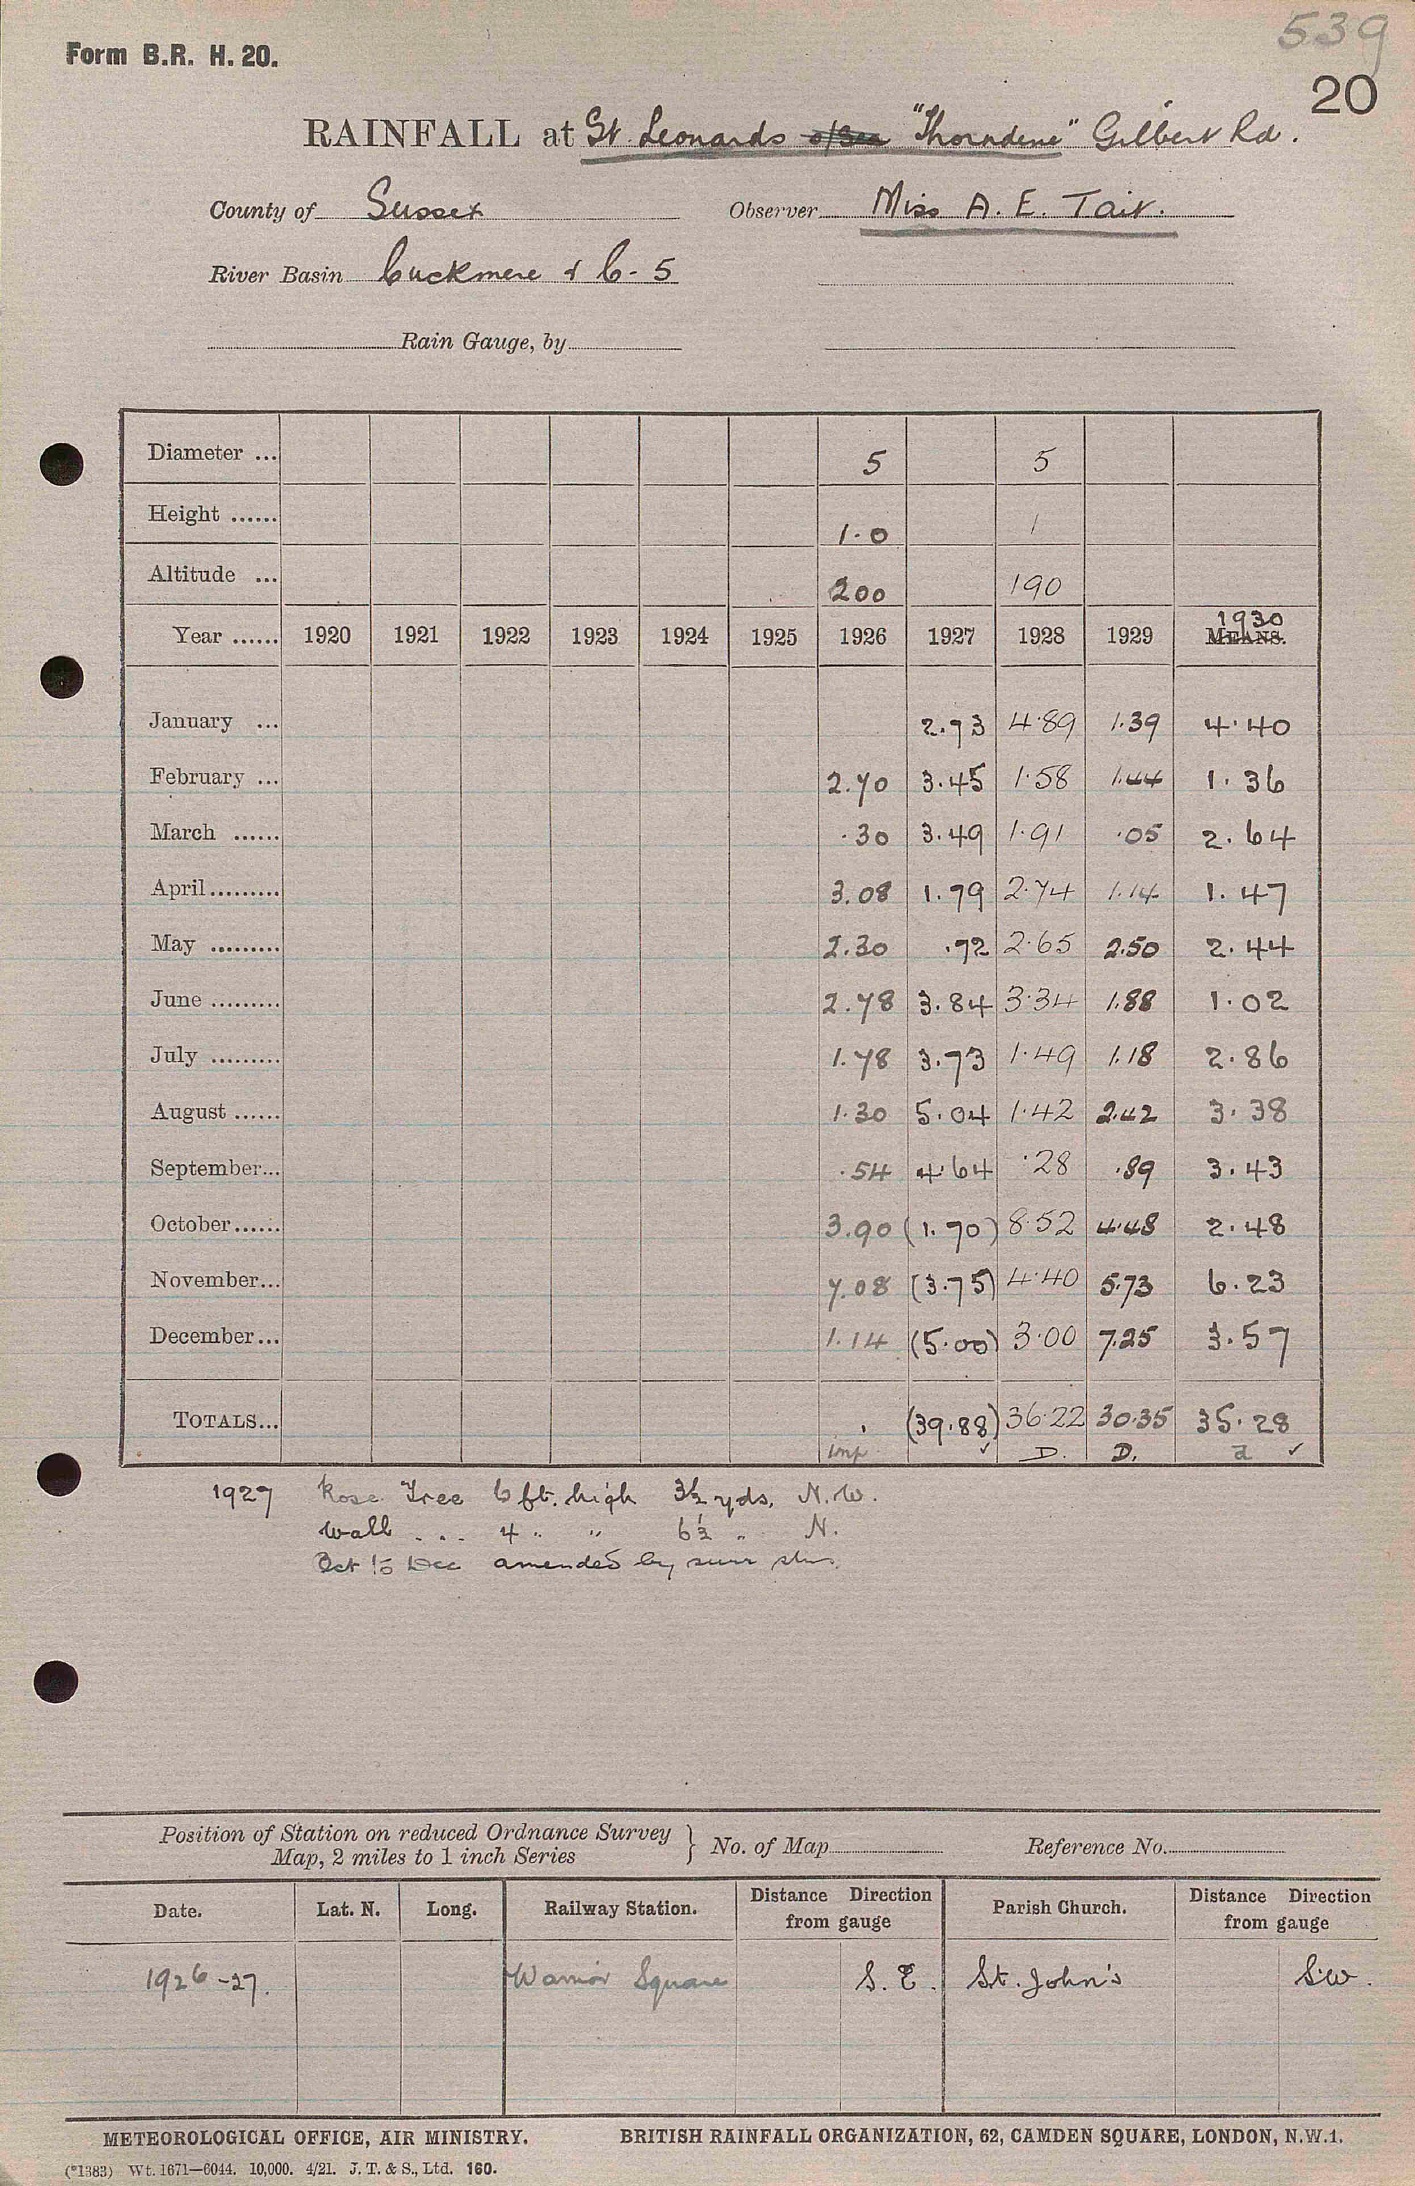 539
Form B.R. H. 20.
20
RAINFALL at St. Leonards o/Sea "Thorndene" Gilbert Rd.
County of Sussex Observer Miss A. E. Tait.
River Basin Cuckmere & C - 5
Rain Gauge, by
Diameter ... 5 5
Height ...... 1.0 1
Altitude ... 200 190
1930
Year ...... 1920 1921 1922 1923 1924 1925 1926 1927 1928 1929 MEANS.
January ... 2.73 4.89 1.39 4.40
February ... 2.70 3.45 1.58 1.44 1.36
March ...... .30 3.49 1.91 .05 2.64
April ......... 3.08 1.79 2.74 1.14 1.47
May ......... 2.30 .72 2.65 2.50 2.44
June ......... 2.78 3.84 3.34 1.88 1.02
July ......... 1.78 3.73 1.49 1.18 2.86
August ...... 1.30 5.04 1.42 2.42 3.38
September... .54 4.64 .28 .89 3.43
October...... 3.90 (1.70) 8.52 4.48 2.48
November... 7.08 (3.75) 4.40 5.73 6.23
December... 1.14 (5.00) 3.00 7.25 3.57
TOTALS... (39.88) 36.22 30.35 35.28
imp ✓ D. D. d ✓
1927 Rose Tree 6 ft. high 3½ yds. N.W.
Wall ... 4 " " 6½ " N.
Oct to Dec amended by surr stns.
Position of Station on reduced Ordnance Survey } No. of Map Reference No.
Map, 2 miles to 1 inch Series
Date. Lat. N. Long. Railway Station. Distance Direction Parish Church. Distance Direction
from gauge from gauge
1926-27. Warrior Square S.E. St. John's S.W.
METEOROLOGICAL OFFICE, AIR MINISTRY. BRITISH RAINFALL ORGANIZATION, 62, CAMDEN SQUARE, LONDON, N.W.1.
(*1383) Wt. 1671—6044. 10,000. 4/21. J. T. & S., Ltd. 160.